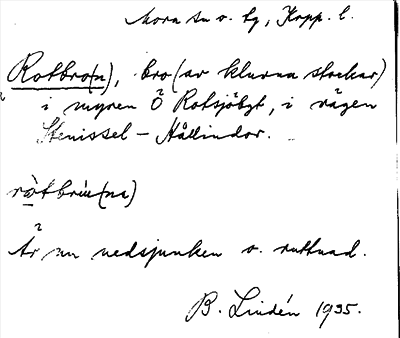 Mora sn o. tg, Kopp. l.
Rotbro(n), bro (av klurna stockar)
i myren Ö Rotsjöbgt, i vägen
Stenissel – Hållindor.
ròtbrú(na)
Är nu nedsjunken o. ruttnad.
B. Lindén 1935.